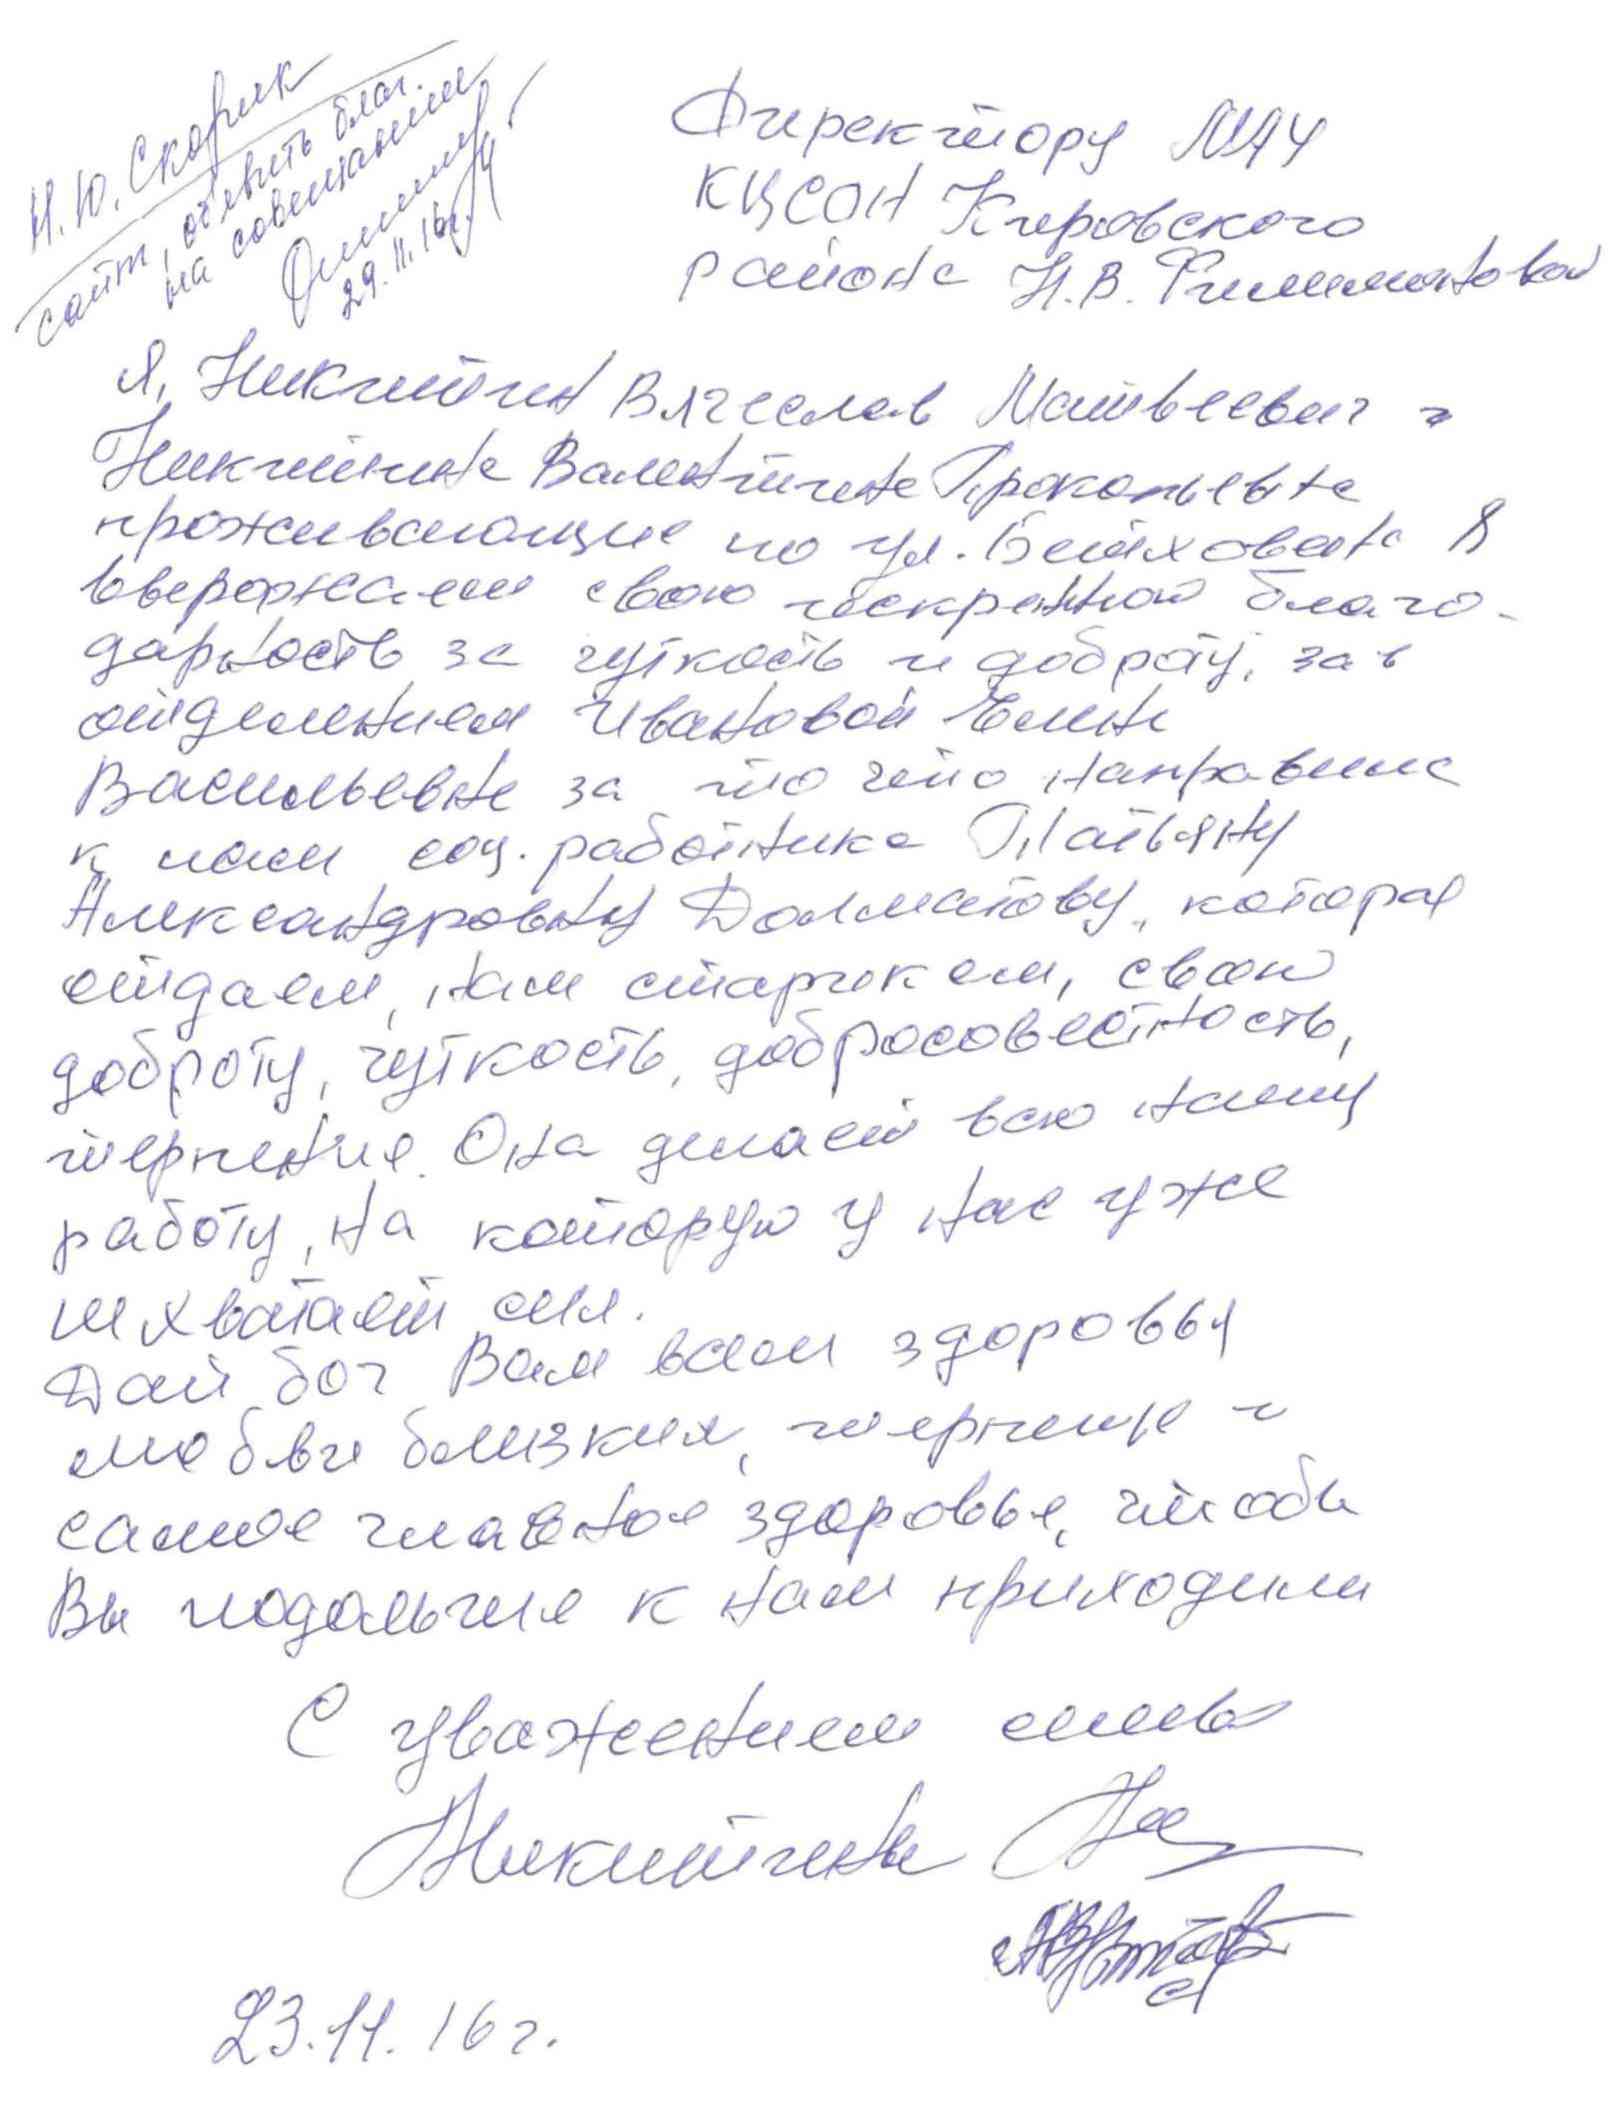 Н.Ю. Скорик
сайт, объявить благ.
на совещании
29.11.16г.
Директору МАУ
КЦСОН Кировского
района Н.В. Филимонова
Я, Никитин Вячеслав Матвеевич и
Никитина Валентина Прокопьевна
проживающие по ул. Бетховена 8
выражаем свою искреннюю благо-
дарность за чуткость и доброту, зав
отделением Ивановой Елене
Васильевне за то что направила
к нам соц. работника Татьяну
Александровну Долматову, которая
отдаем, нам старикам, свою
доброту, чуткость, добросовестность,
терпение. Она делает всю нашу
работу, на которую у нас уже
не хватает сил.
Дай бог Вам всем здоровья
любви близких, терпение и
самое главное здоровье, чтобы
Вы подольше к нам приходили
С уважением семья
Никитины
23.11.16 г.